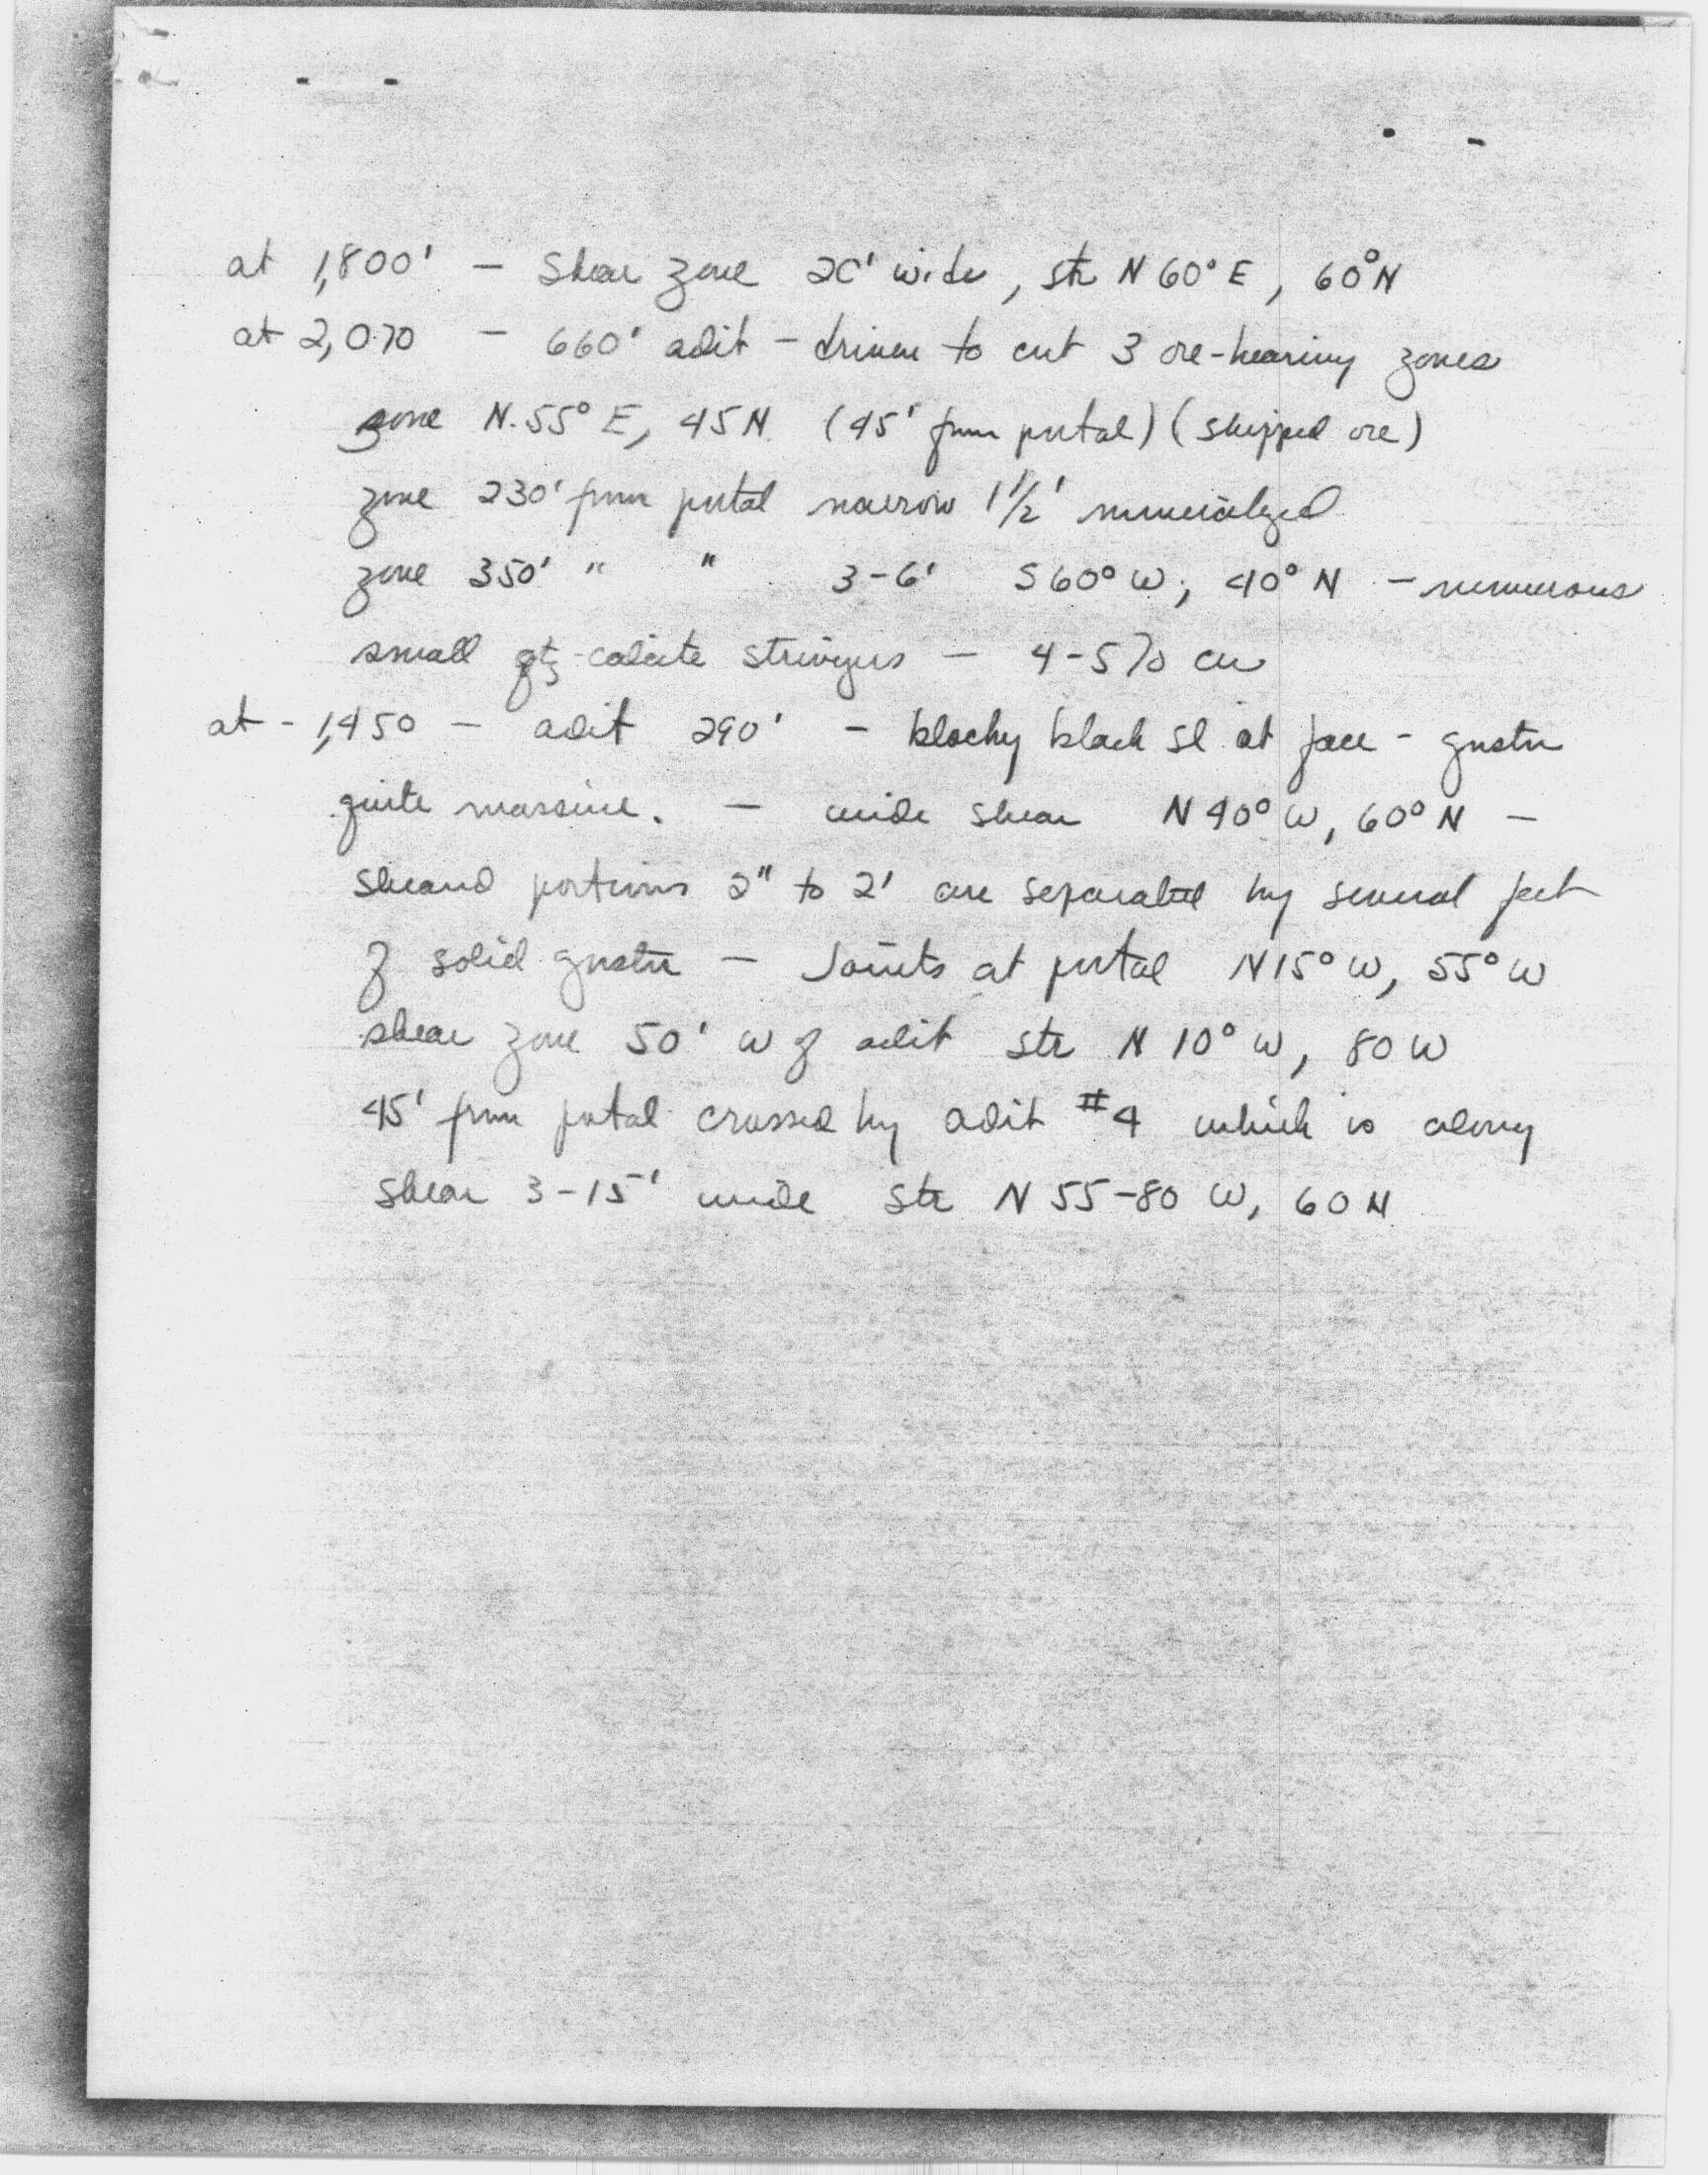 at 1,800' - Shear zone 20' wide, str N 60° E, 60° N
at 2,070 - 660' adit - driven to cut 3 ore-bearing zones
zone N. 55° E, 45 N. (45' from portal) (shipped ore)
zone 230' from portal narrow 1 1/2' mineralized
zone 350' " " 3-6' S 60° W, 40° N - numerous
small qtz-calcite stringers - 4-5% cu
at - 1,450 - adit 290' - blocky black sl at face - gnstn
quite massive. - wide shear N 40° W, 60° N -
sheared portions 2" to 2' are separated by several feet
of solid gnstn - Joints at portal N 15° W, 55° W
shear zone 50' W of adit str N 10° W, 80 W
45' from portal crossed by adit #4 which is along
shear 3-15' wide str N 55-80 W, 60 N